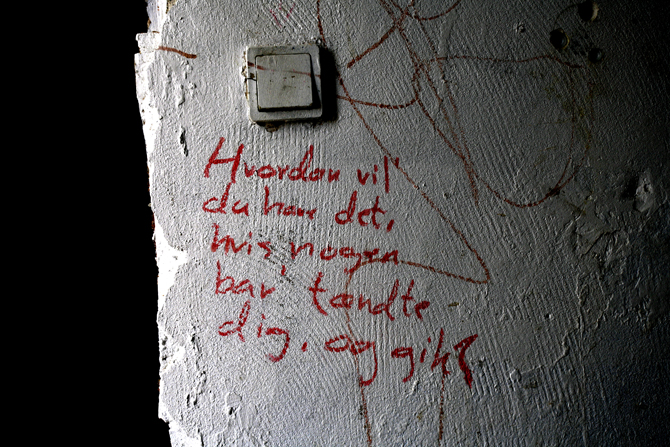 Hvordan vil'
du har det,
hvis nogen
bar' tændte
dig, og gik?